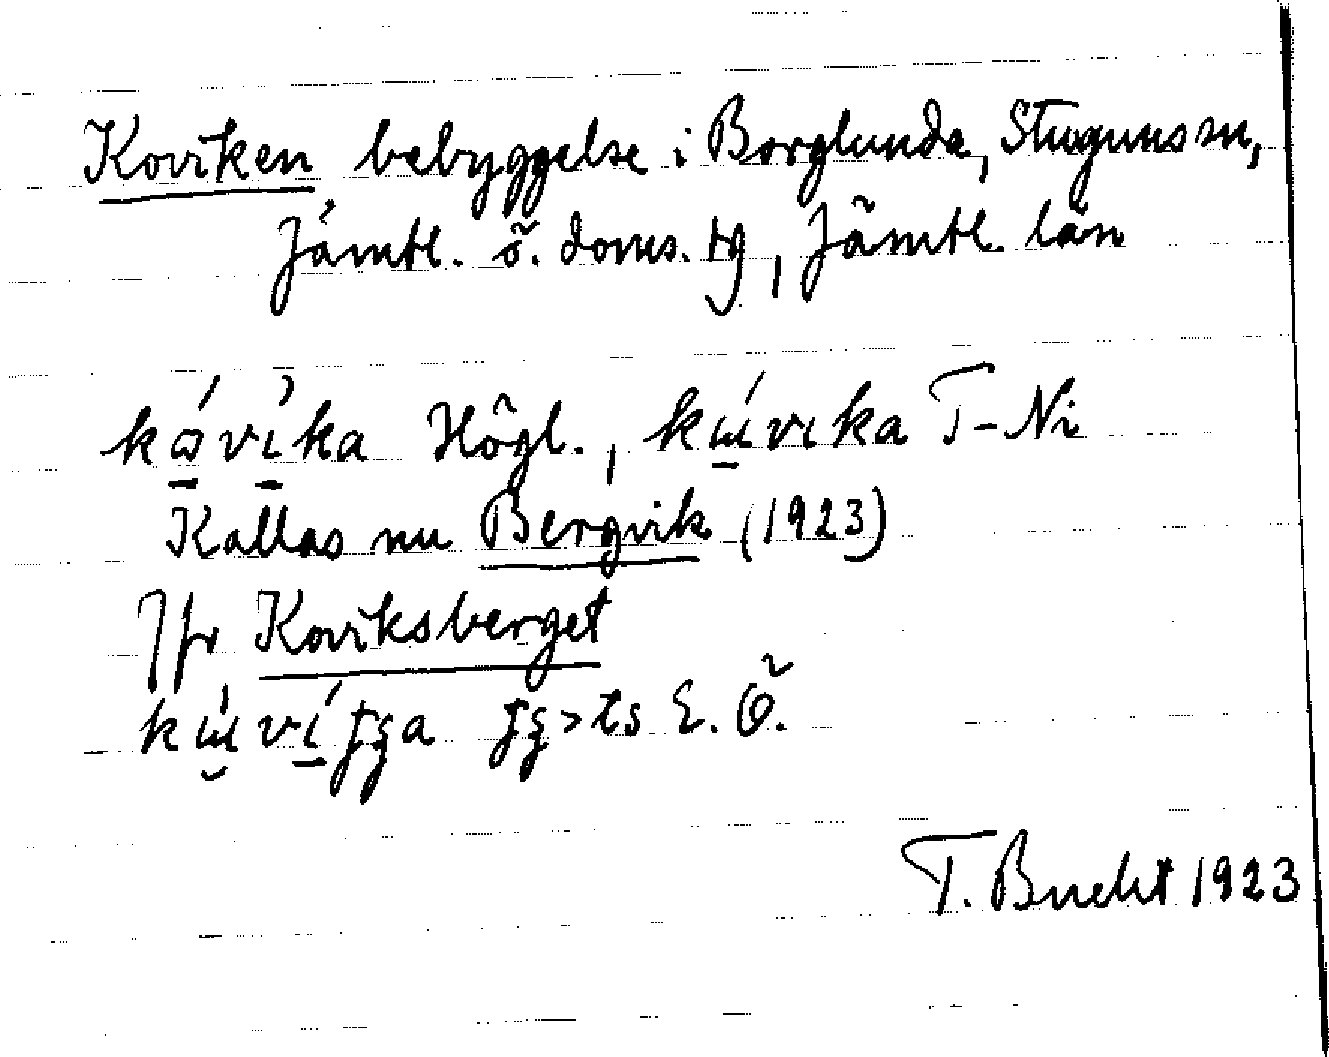 Koviken bebyggelse i Borglunda, Stuguns sn,
Jämtl. ö. doms. tg, Jämtl. län
kɷ́vi̇̀ka Högl., kɯ́vıka T-Ni
Kallas nu Bergvik (1923)
Jfr Koviksberget
E. Ö.
T. Bucht 1923